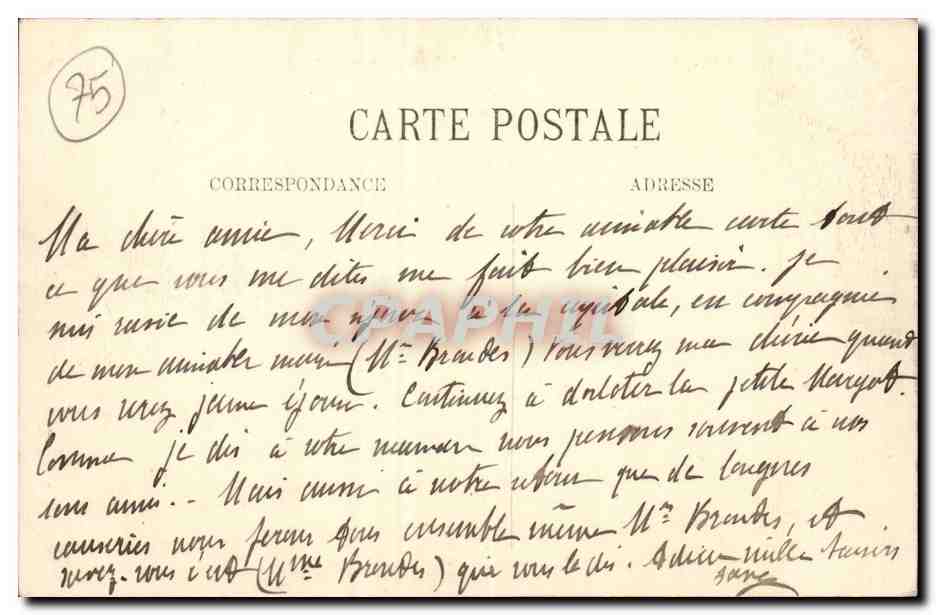 75
CARTE POSTALE
CORRESPONDANCE ADRESSE
Ma chère amie, Merci de votre aimable carte tout
ce que vous me dites me fait bien plaisir. Je
suis ravie de mon séjour à la capitale, en compagnie
de mon aimable mari (Mr Brandes) vous verrez ma chérie quand
vous serez jeune épouse. Continuez à dorloter la petite Margot.
Comme je dis à votre maman nous pensons souvent à nos
bons amis. - Mais aussi à notre retour que de longues
causeries nous ferons tous ensemble même Mr Brandes, et
savez-vous c'est (Mme Brandes) qui vous le dis. Adieu mille baisers
CPAPHIL